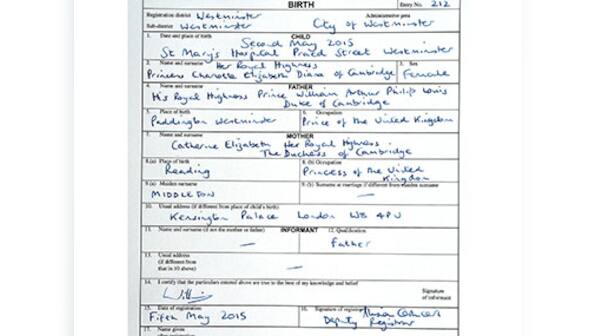 BIRTH
Entry No. 212
Registration district Westminster
Administrative area
Sub-district Westminster
City of Westminster
1. Date and place of birth
CHILD
Second May 2015
St Mary's Hospital Praed Street Westminster
2. Name and surname
Her Royal Highness
3. Sex
Princess Charlotte Elizabeth Diana of Cambridge
Female
4. Name and surname
FATHER
His Royal Highness Prince William Arthur Philip Louis
Duke of Cambridge
5. Place of birth
6. Occupation
Paddington Westminster
Prince of the United Kingdom
7. Name and surname
MOTHER
Catherine Elizabeth Her Royal Highness
The Duchess of Cambridge
8.(a) Place of birth
8.(b) Occupation
Reading
Princess of the United
Kingdom
9.(a) Maiden surname
9.(b) Surname at marriage if different from maiden surname
MIDDLETON
10. Usual address (if different from place of child's birth)
Kensington Palace London W8 4PU
11. Name and surname (if not the mother or father)
INFORMANT
12. Qualification
Father
13. Usual address
(if different from
that in 10 above)
14. I certify that the particulars entered above are true to the best of my knowledge and belief
Signature
of informant
15. Date of registration
16. Signature of registrar
Fifth May 2015
Deputy Registrar
17. Name given